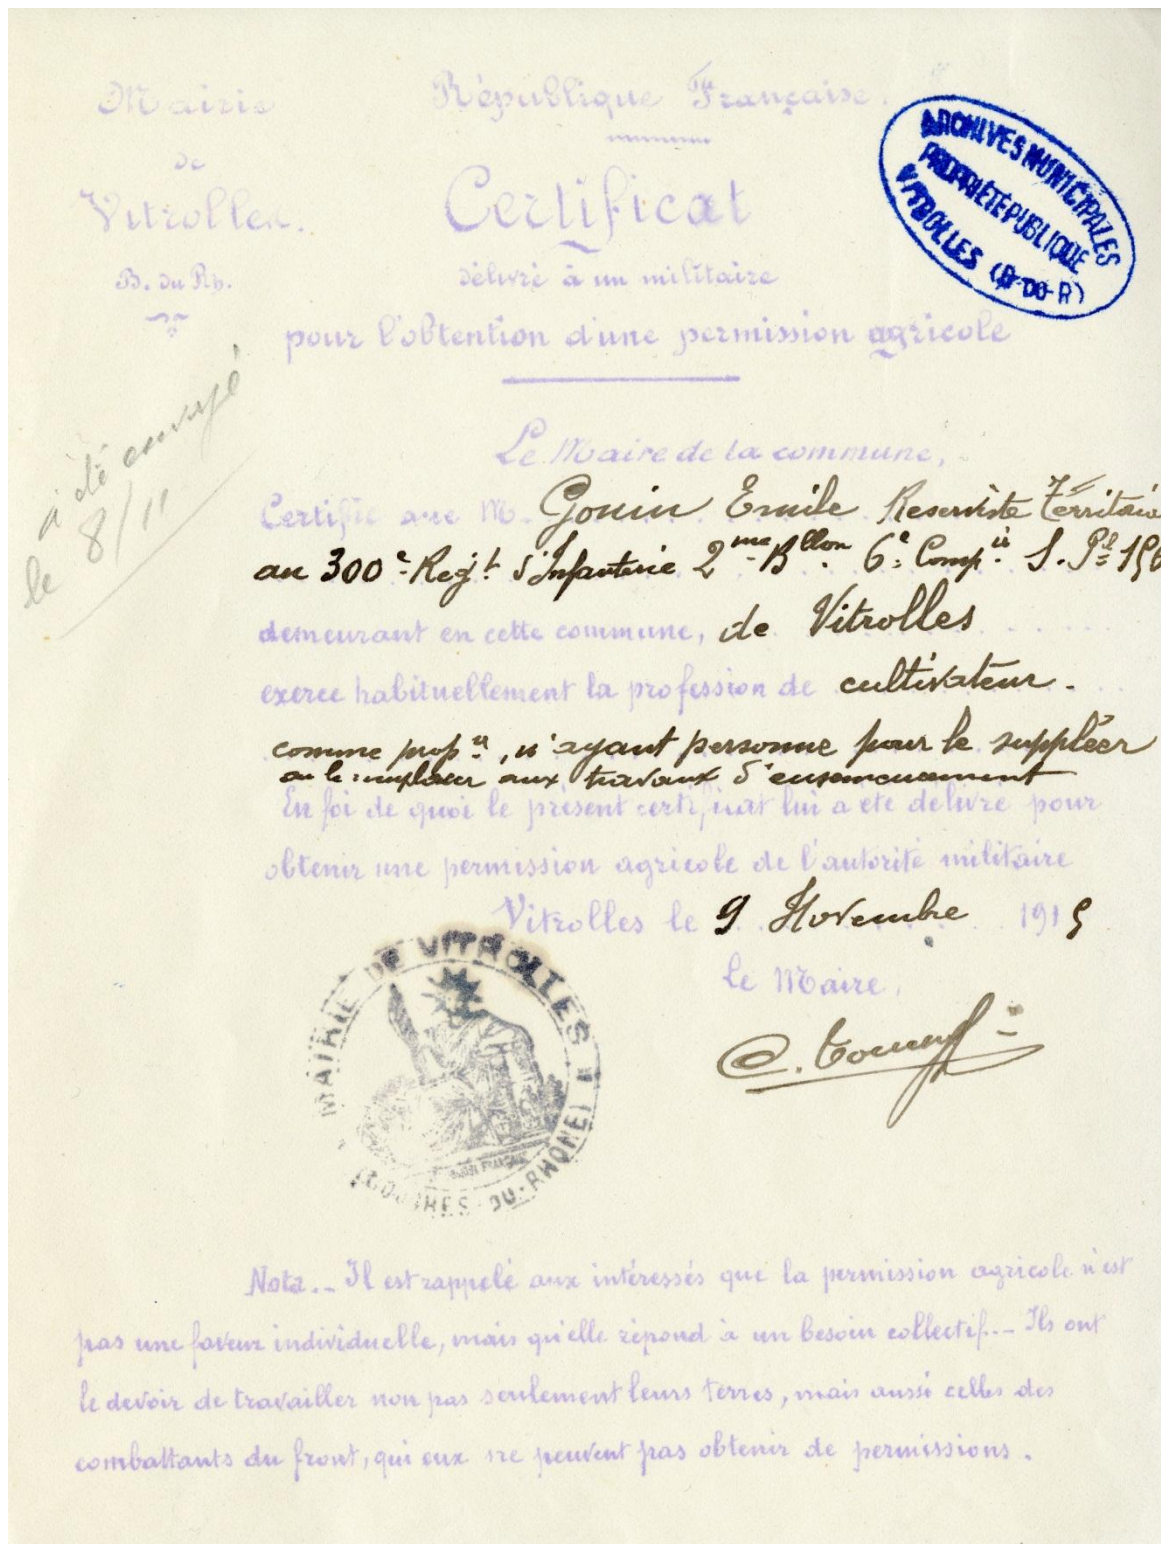 Mairie
de
Vitrolles.
B. du Rh.
République Française.
Certificat
délivré à un militaire
pour l'obtention d'une permission agricole
ARCHIVES MUNICIPALES
PROPRIÉTÉ PUBLIQUE
VITROLLES (B-DU-R)
a été envoyé
le 8/11
Le Maire de la commune,
Certifie que M. Gouin Emile Reserviste Territoria
au 300e Regt. d'Infanterie 2me Bllon. 6e Compie S. Pal 156
demeurant en cette commune, de Vitrolles
exerce habituellement la profession de cultivateur.
comme propre, n'ayant personne pour le suppléer
ou le remplacer aux travaux d'ensemencement
En foi de quoi le présent certificat lui a été délivré pour
obtenir une permission agricole de l'autorité militaire
Vitrolles le 9 Novembre 1915
Le Maire,
MAIRIE DE VITROLLES
(BOUCHES-DU-RHONE)
Nota._ Il est rappelé aux intéressés que la permission agricole n'est
pas une faveur individuelle, mais qu'elle répond à un besoin collectif._ Ils ont
le devoir de travailler non pas seulement leurs terres, mais aussi celles des
combattants du front, qui eux ne peuvent pas obtenir de permissions.